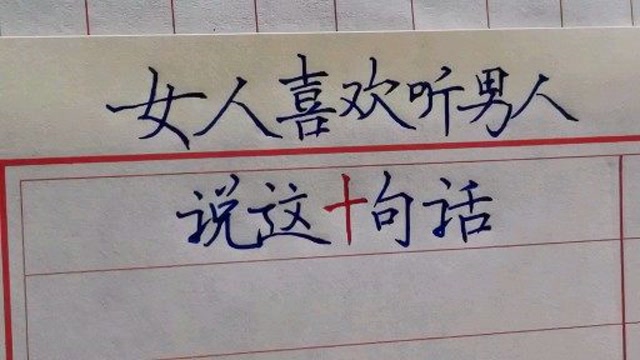 女人喜欢听男人
说这十句话